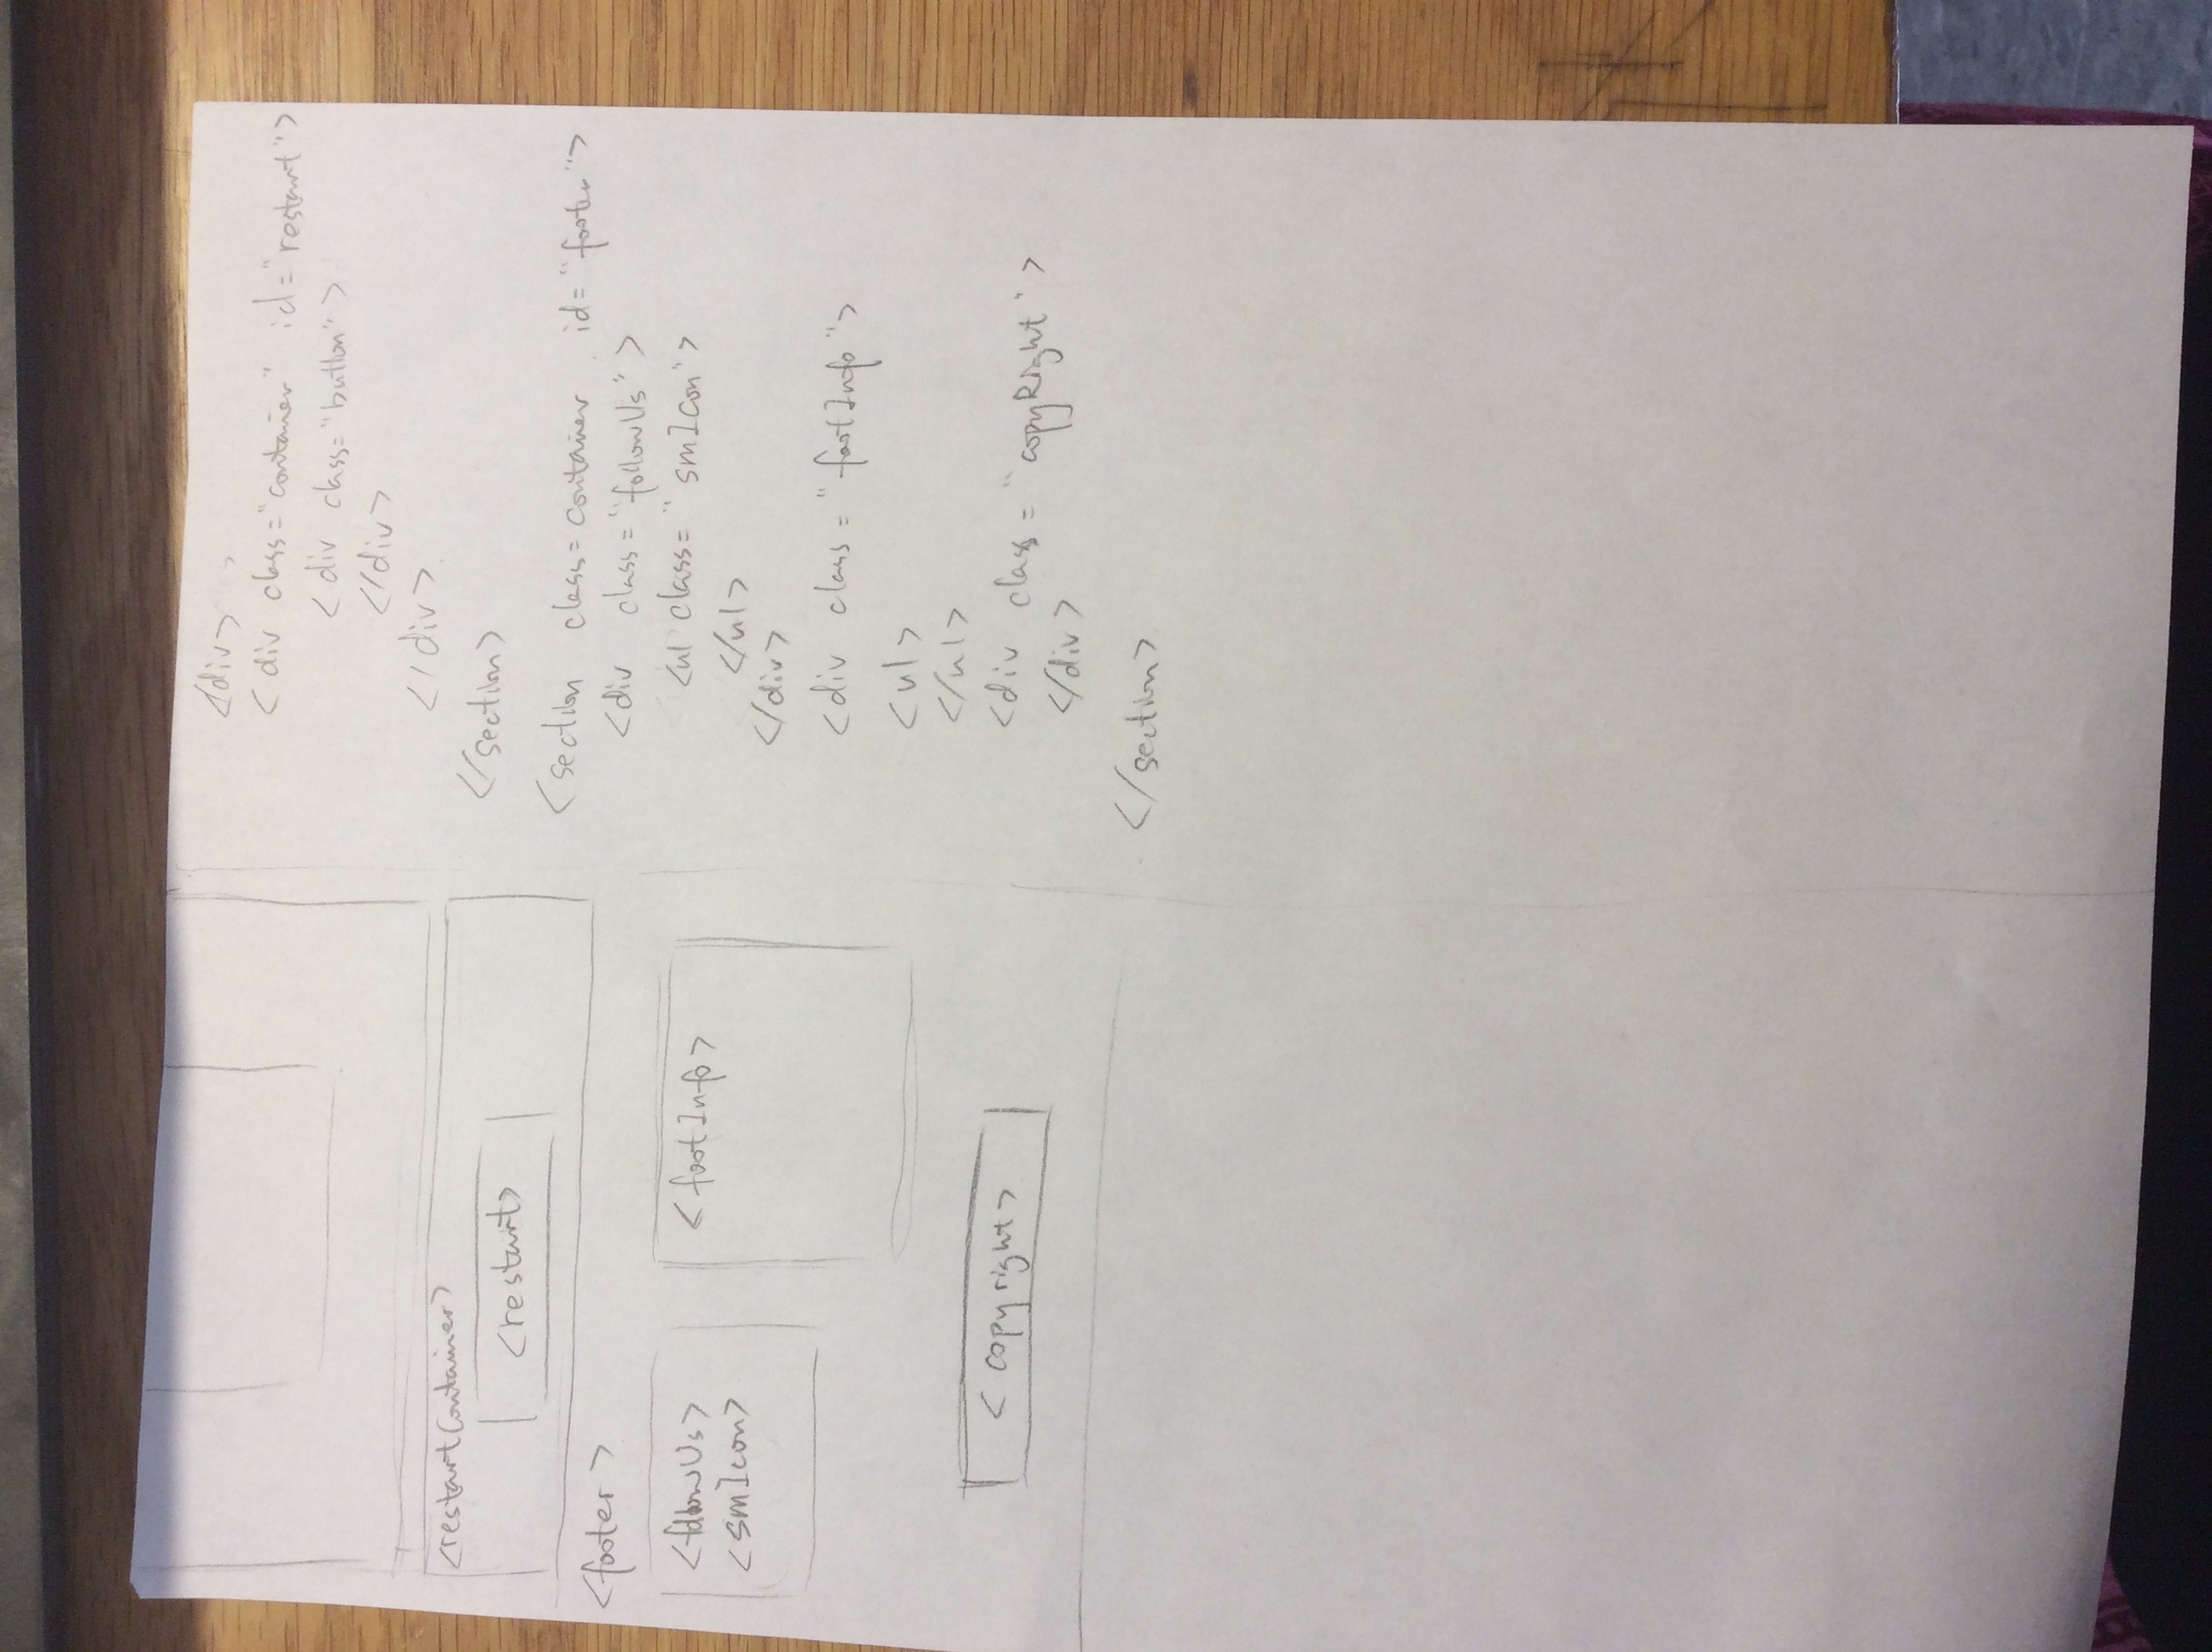 <restartContainer>
<restart>
<footer>
<followUs>
<smIcon>
<footInfo>
<copyright>
</div>
<div class="container" id="restart">
<div class="button">
</div>
</div>
</section>
<section class=container id="footer">
<div class="followUs">
<ul class="smIcon">
</ul>
</div>
<div class="footInfo">
<ul>
</ul>
<div class="copyRight">
</div>
</section>